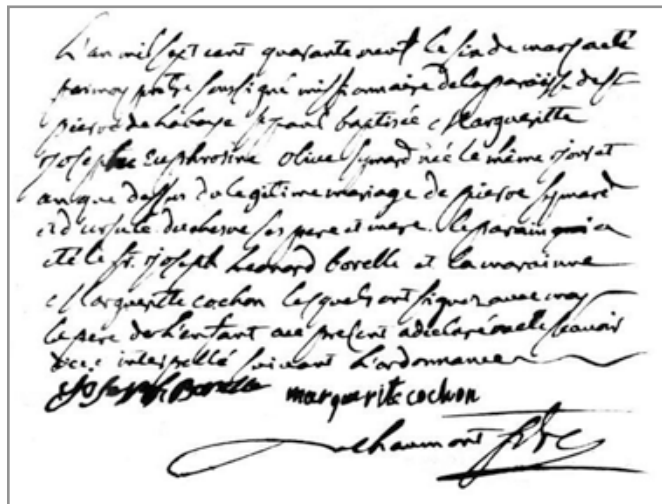 L'an mil sept cent quarante neuf le six de mars a eté
par moy prêtre soussigné missionnaire de la paroisse de st
pierre de la baye st paul baptisée Marguerite
joseph Euphrosine olive Symard née le même jour et
an que dessus du legitime mariage de pierre Symard
et d'ursule duchesne ses pere et mere. le parain qui a
eté le sr. joseph Leonard borelle et la maraine
Marguerite cochon lesquels ont signez avec moy
le pere de l'enfant present a declaré ne le scavoir
de ce interpellé suivant l'ordonnance
Joseph Borelle marguerite cochon
chaumont ptre